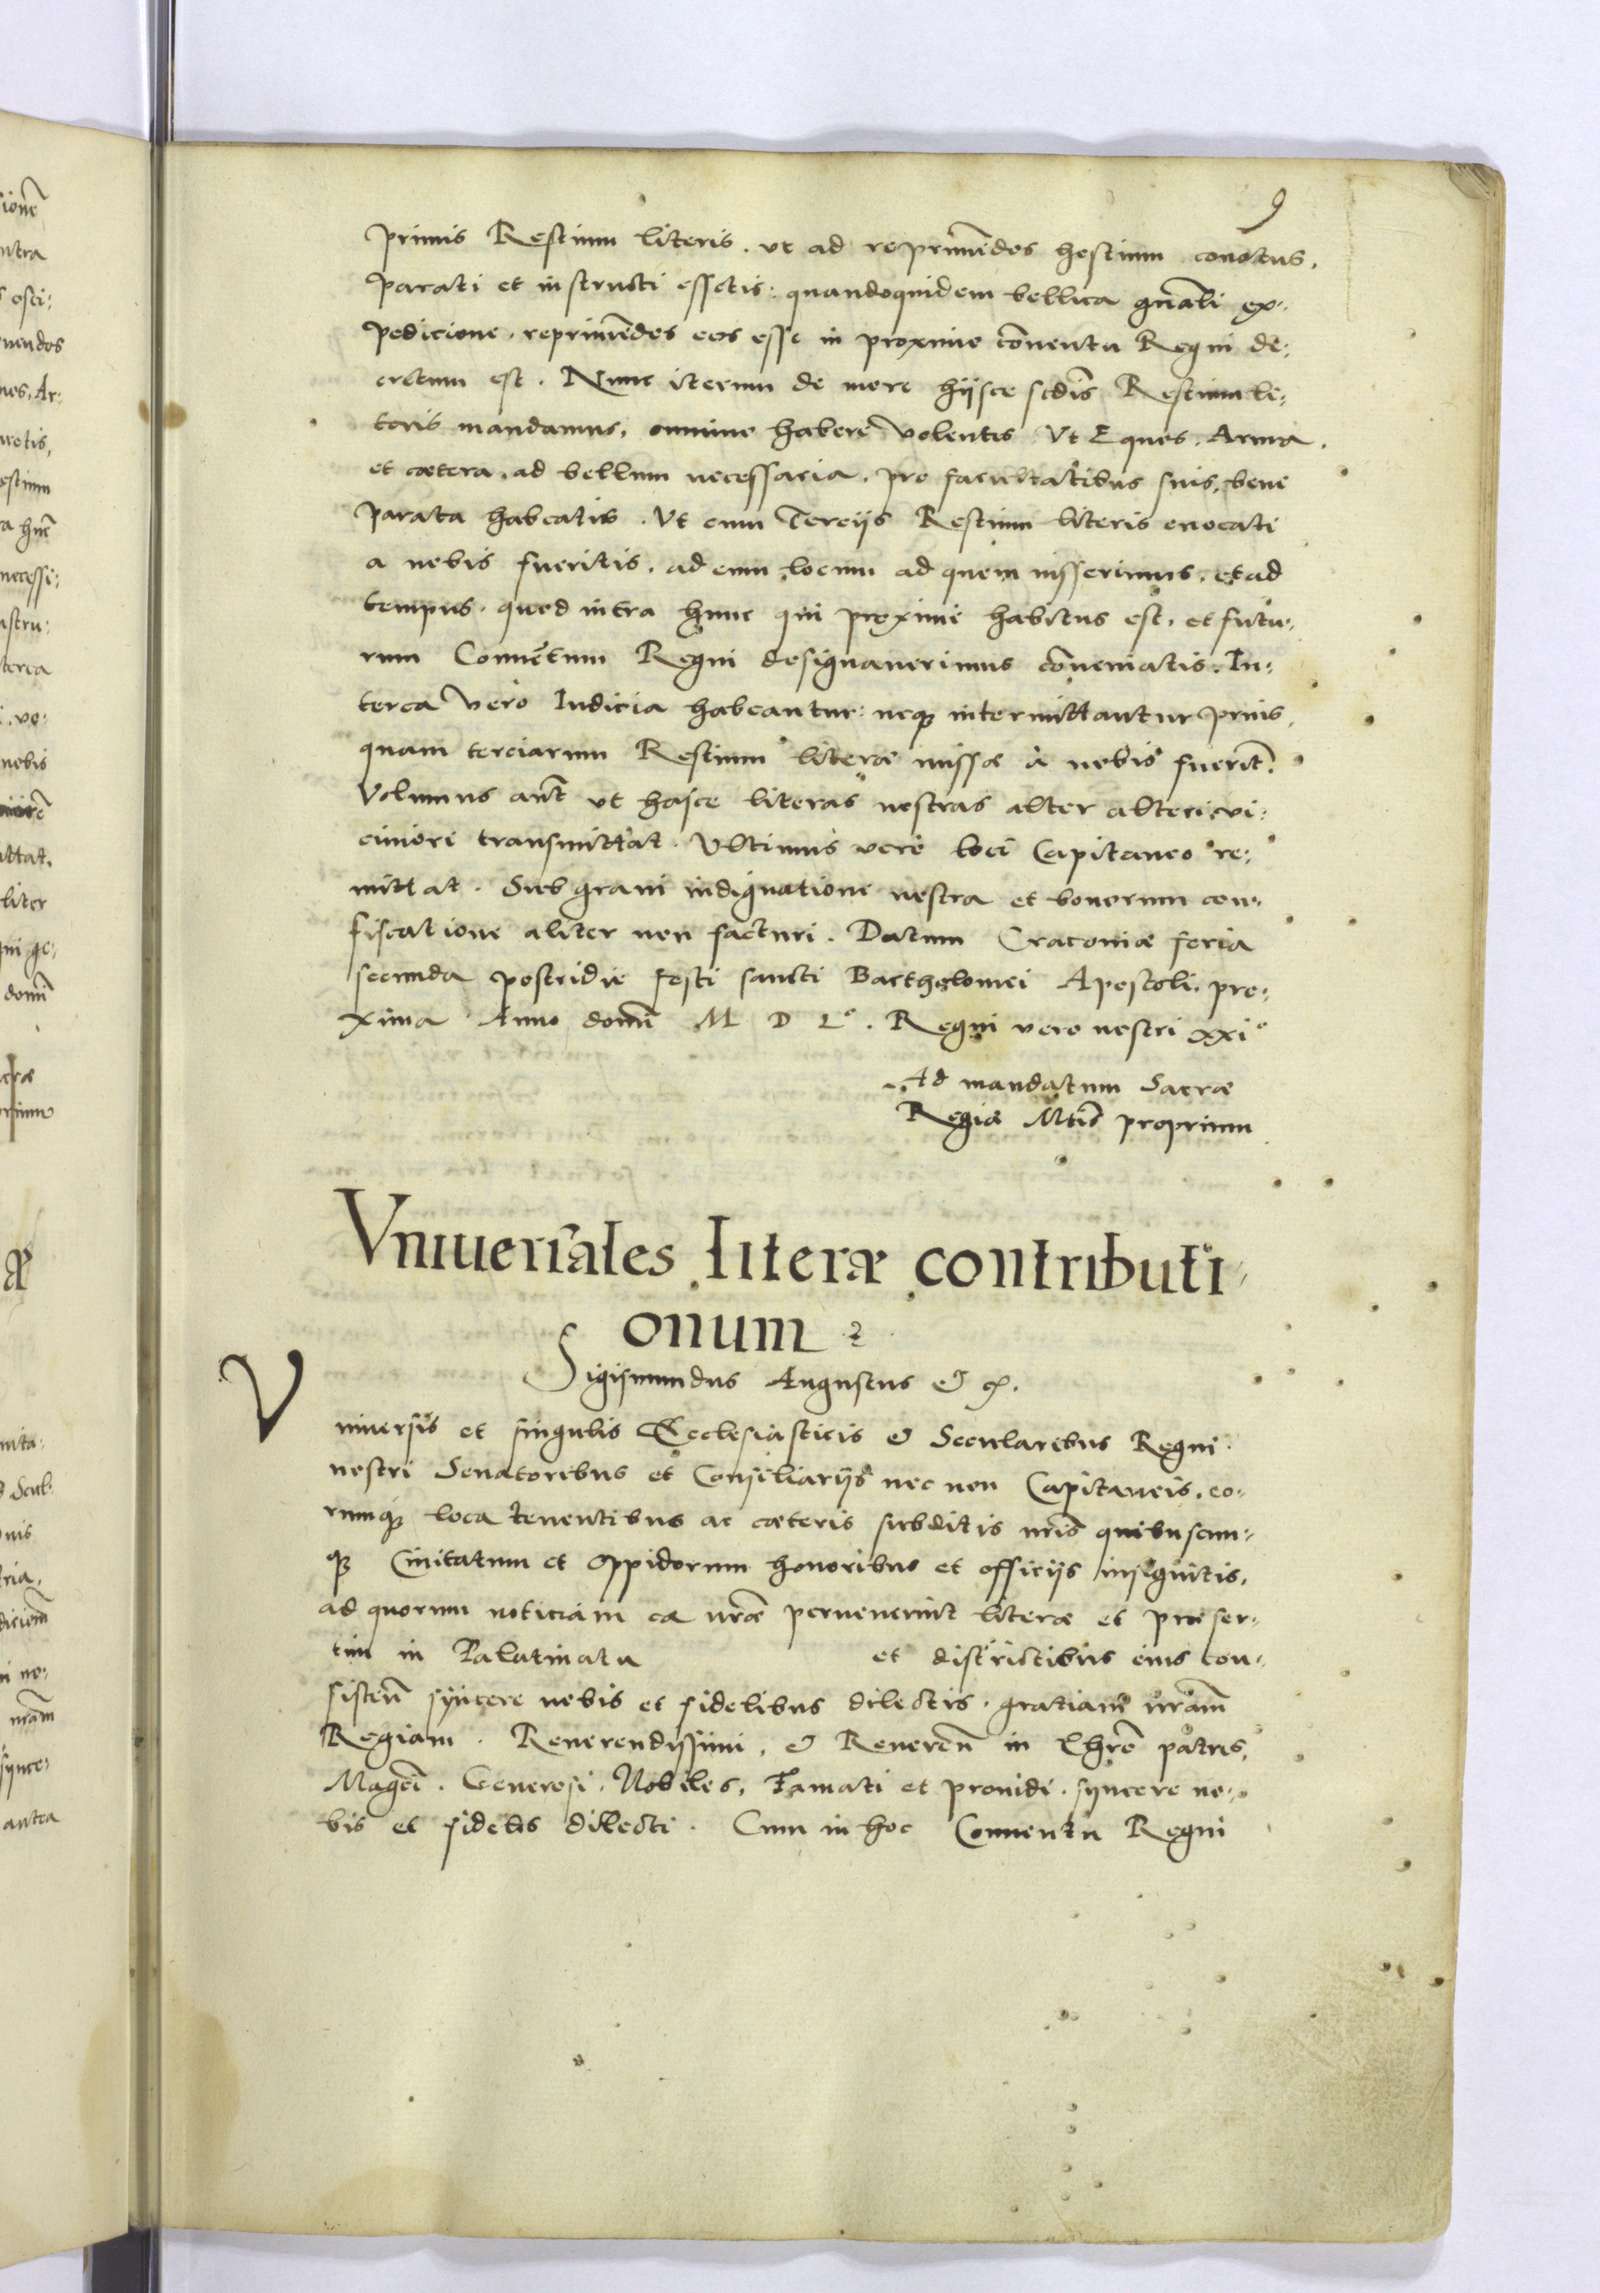 9
primis Restium literis. ut ad reprimēdos hostium conatus,
parati et instructi essetis: quandoquidem bellica gnāli ex-
pedicione. reprimēdos eos esse in proximo cōuentu Regni de-
cretum est. Nunc iterum de more hijsce scdīs Restium li-
teris mandamus, omnino habere volentes Vt Equos, Arma,
et cætera, ad bellum necessaria, pro facultatibus suis, bene
parata habeatis. Vt cum Tercijs Restium literis euocati
a nobis fueritis, ad eum locum ad quem iusserimus, et ad
tempus, quod intra hunc qui proxime habitus est, et futu-
rum Conuētum Regni designauerimus cōueniatis. In-
terea vero Iudicia habeantur: neq; intermittantur prius,
quam terciarum Restium literæ missæ a nobis fuerīt.
Volumus aūt ut hasce literas nostras alter alteri vi-
ciniori transmittat. Vltimus vero loci Capitaneo re-
mittat. Sub graui indignatione nostra et bonorum con-
fiscatione aliter non facturi. Datum Cracouiæ feria
secunda postridie festi sancti Bartholomei Apostoli, pro-
xima Anno domī M D L°. Regni vero nostri xxi°
Ad mandatum Sacræ
Regiæ Mtīs proprium
Vniuersales literæ contributi-
onum
Sigismundus Augustus & c.
Vniuersis et singulis Ecclesiasticis & Secularibus Regni
nostri Senatoribus et Consiliarijs nec non Capitaneis, eo-
rumq; loca tenentibus ac cæteris subditis nrīs quibuscun-
q; Ciuitatum et Oppidorum honoribus et officijs insignitis,
ad quorum noticiam eæ nræ peruenerint literæ et præser-
tim in Palatinatu et districtibus eius con-
sisteñ syncere nobis et fidelibus dilectis, gratiam nrām
Regiam. Reuerendissimi, & Revereñ in Chrō patres,
Magcī. Generosi, Nobiles, Famati et prouidi. syncere no-
bis et fideles dilecti. Cum in hoc Conuentu Regni